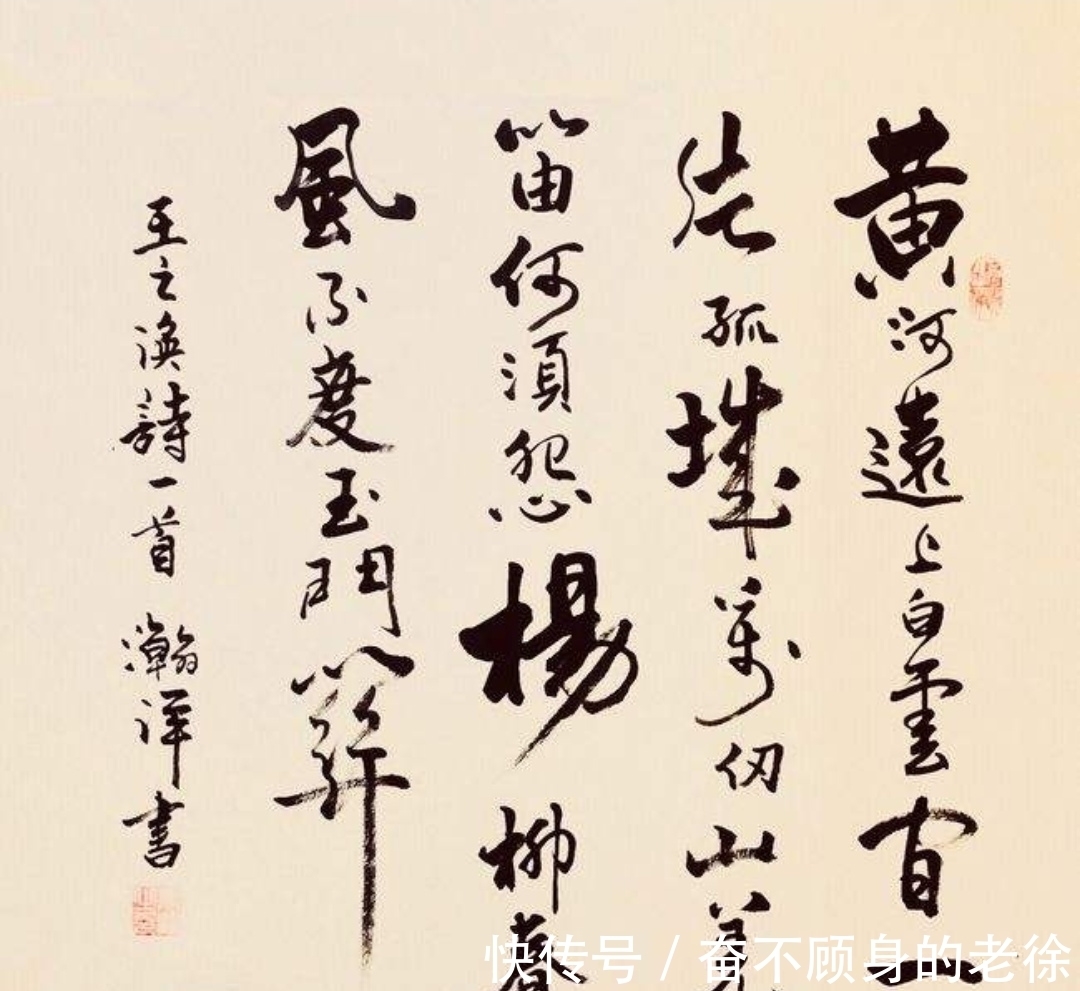 黄河遠上白雲間一
片孤城萬仞山羌
笛何須怨楊柳春
風不度玉門關
王之涣詩一首 瀚洋書
快传号 / 奋不顾身的老徐